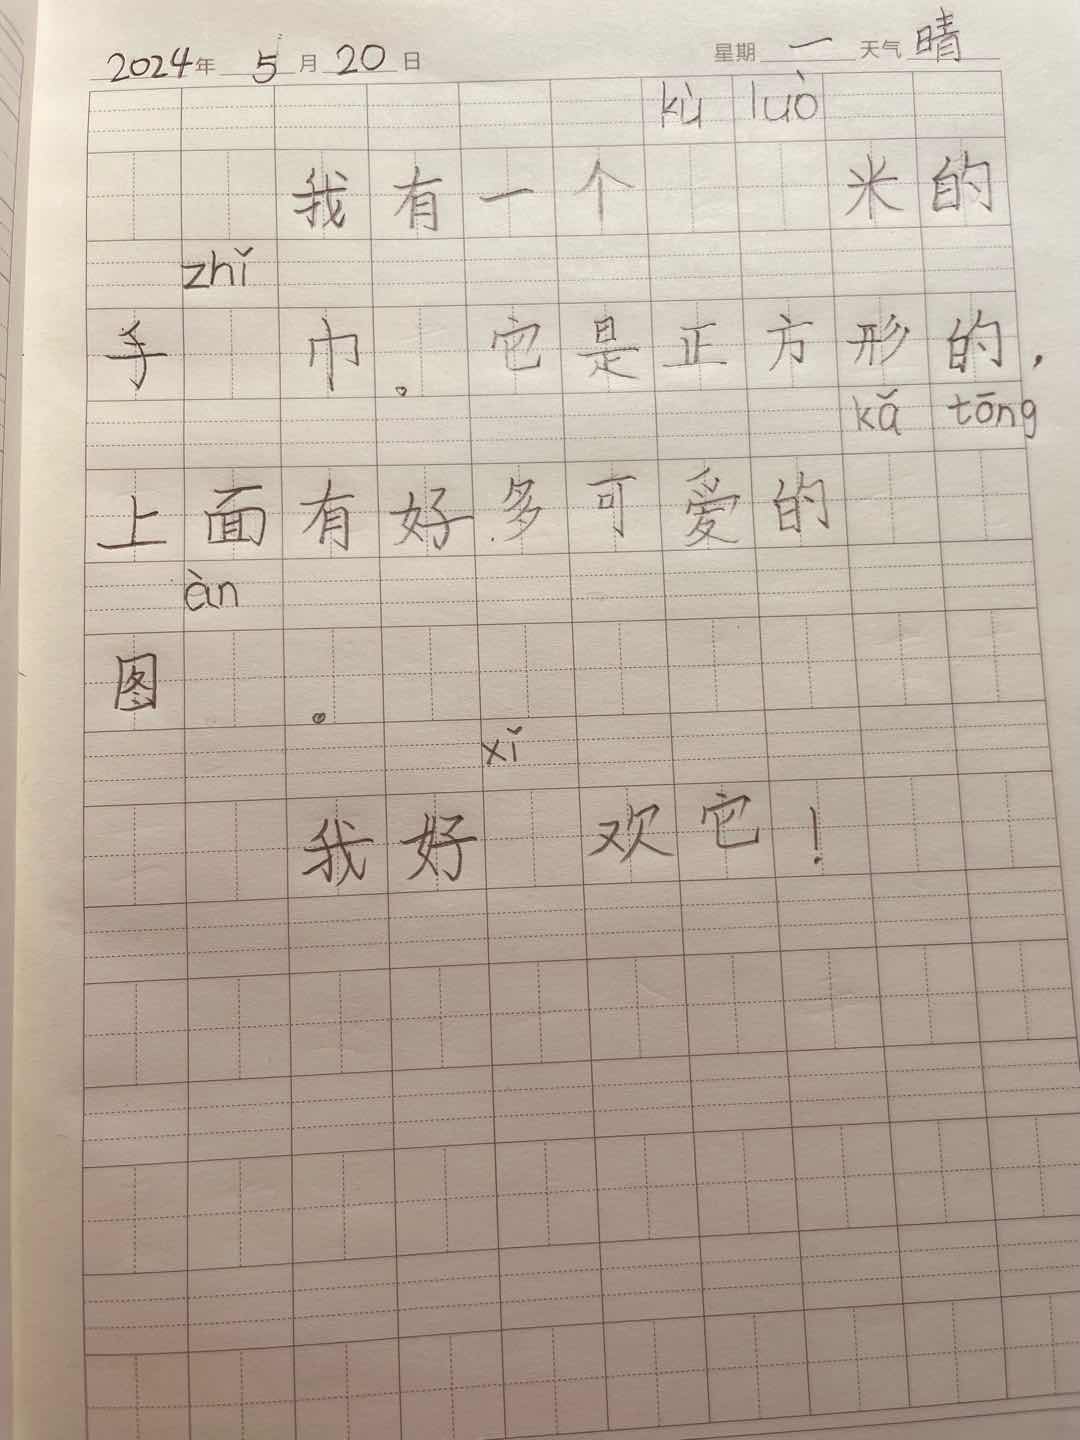 2024年 5月 20日 星期 一 天气 晴
kù luò
我有一个 米的
zhǐ
手 巾。它是正方形的，
kǎ tōng
上面有好多可爱的
àn
图 。
xǐ
我好 欢它！